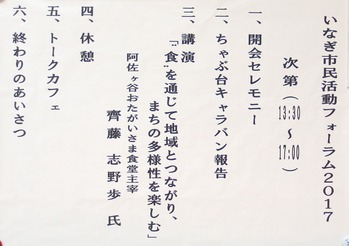 いなぎ市民活動フォーラム2017
次第(13:30～17:00)
一、開会セレモニー
二、ちゃぶ台キャラバン報告
三、講演
「"食"を通じて地域とつながり、
まちの多様性を楽しむ」
阿佐ヶ谷おたがいさま食堂主宰
齊藤 志野歩 氏
四、休憩
五、トークカフェ
六、終わりのあいさつ